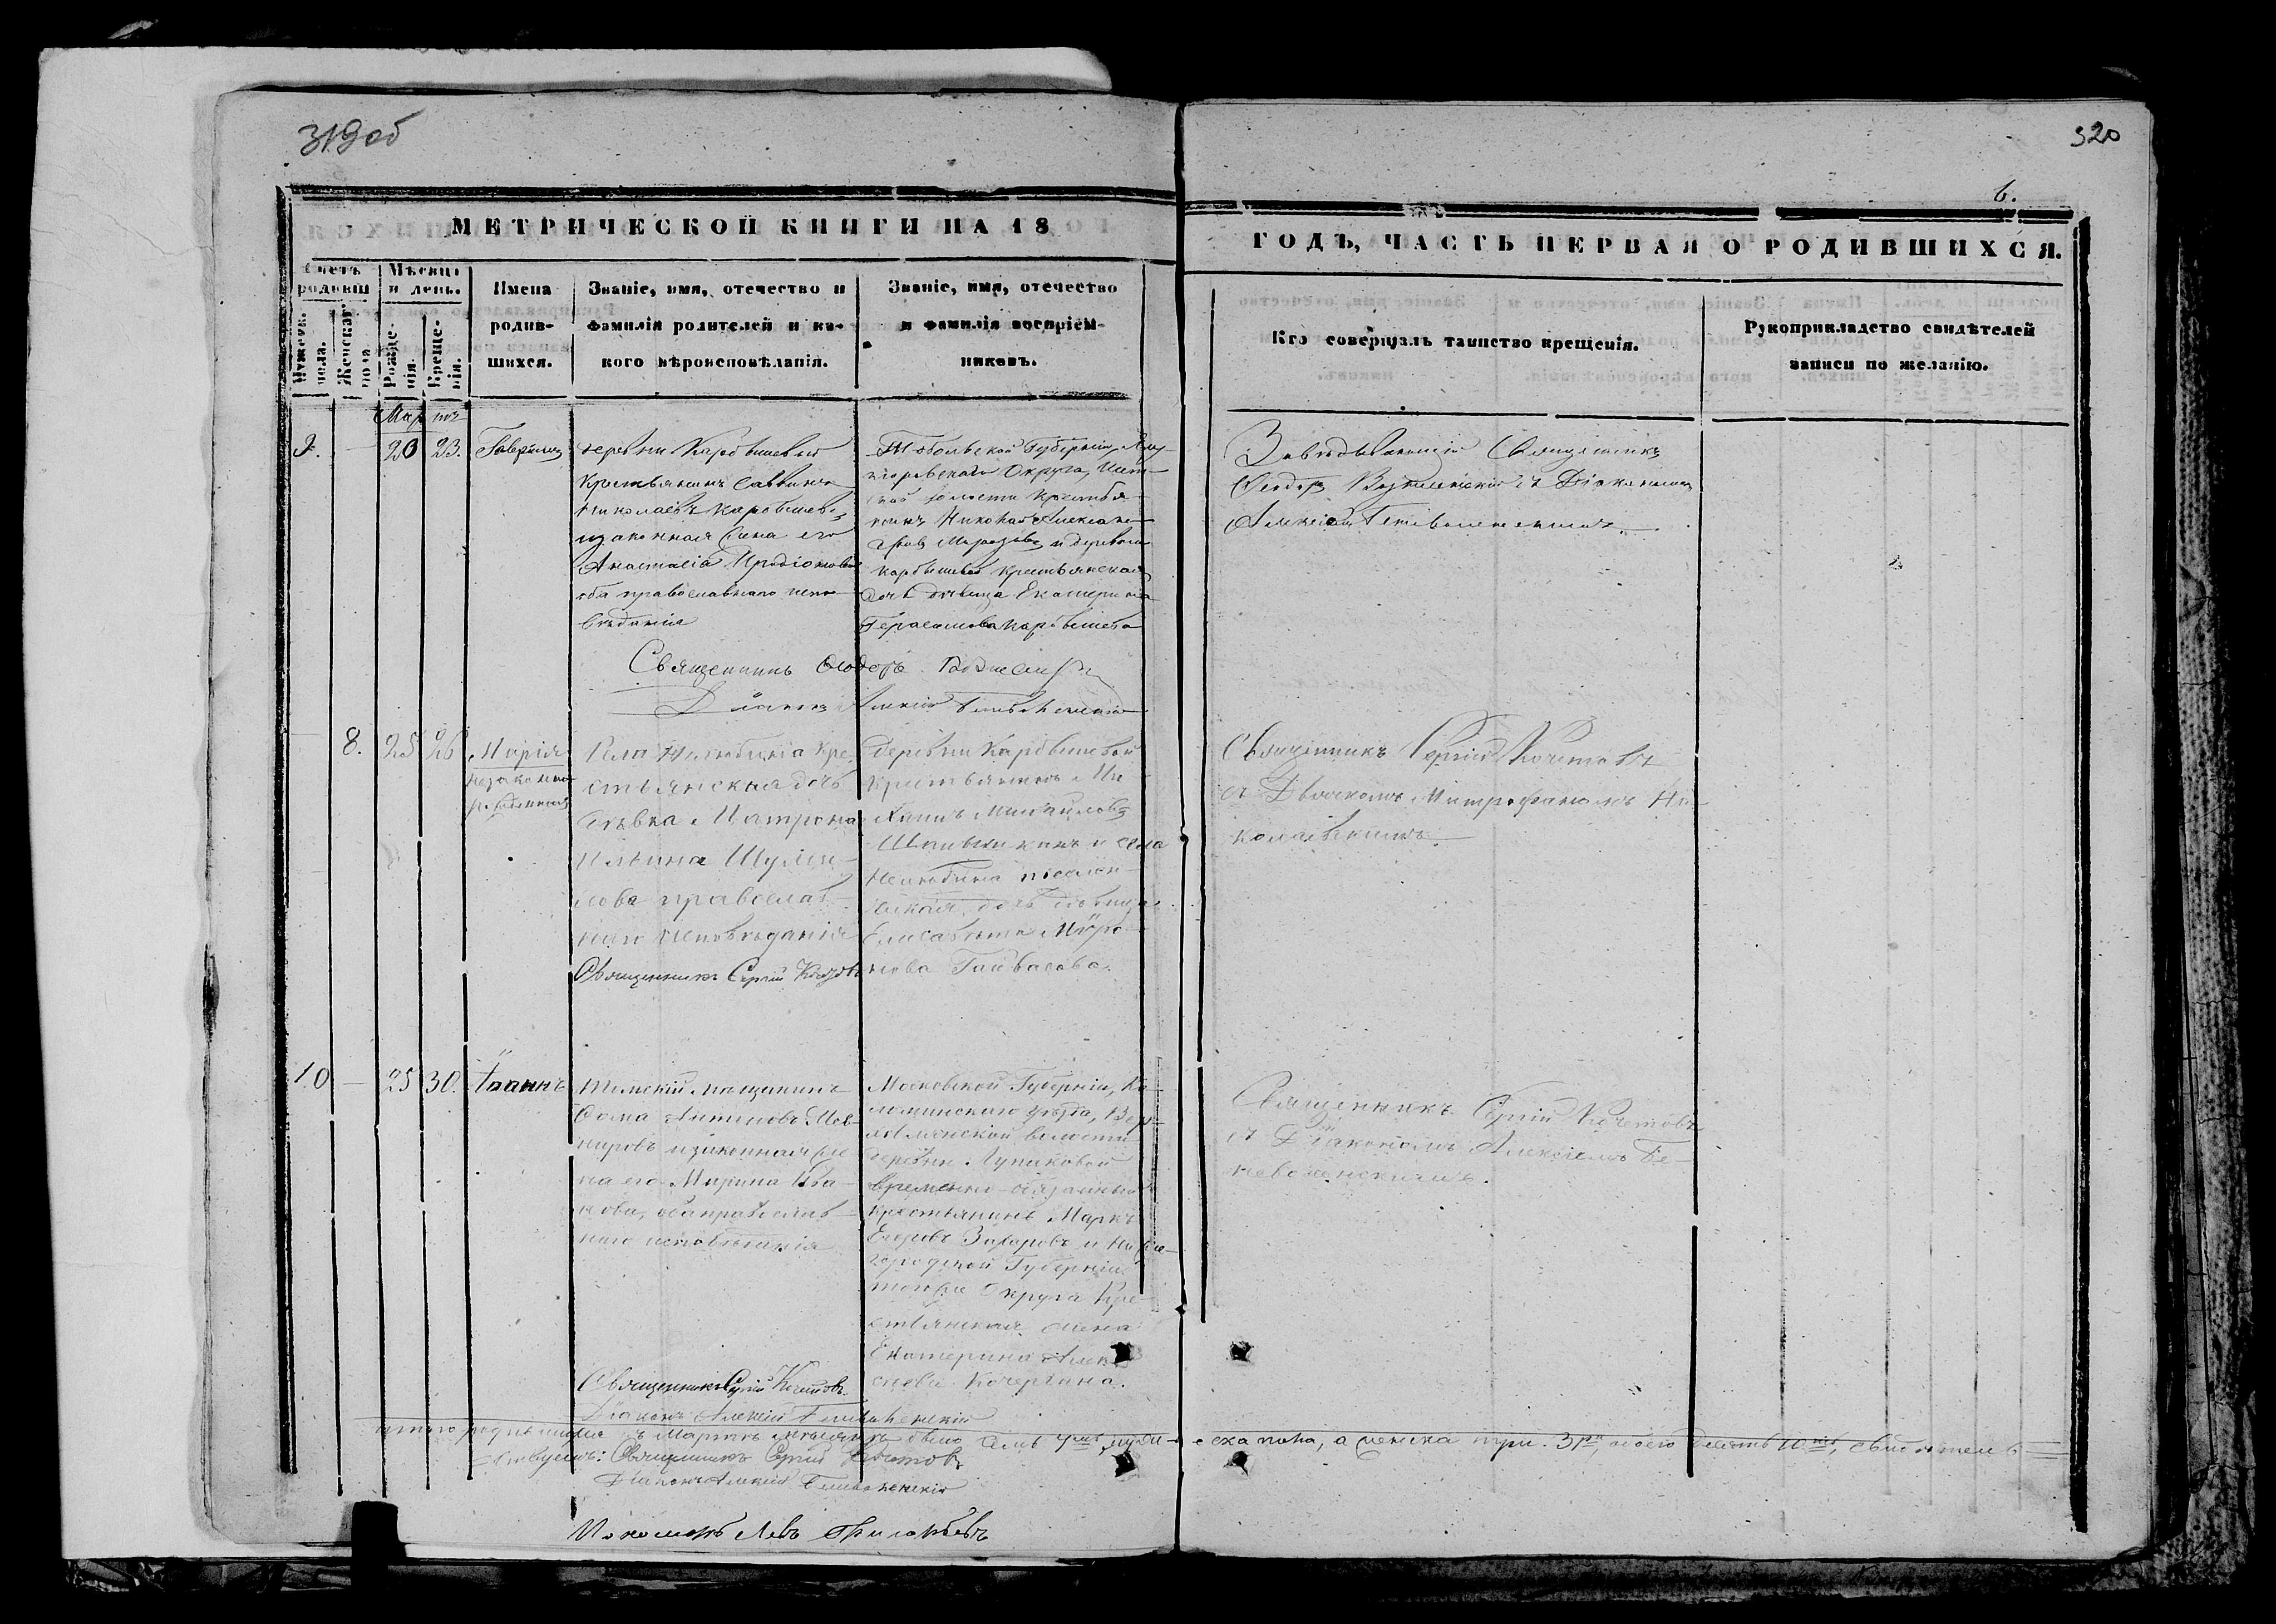 319об
320
6.
МЕТРИЧЕСКОЙ КНИГИ НА 18
ГОДЪ, ЧАСТЬ ПЕРВАЯ О РОДИВШИХСЯ.
Счетъ родивш
Мѣсяцъ и день.
Мужеск. пола.
Женскаг. пола
Рожде-
нія.
Креще-
нія.
Имена
родив-
шихся.
Званіе, имя, отечество и
фамилія родителей и ка-
кого вѣроисповѣданія.
Званіе, имя, отечество
и фамилія воспріем-
никовъ.
Кто совершалъ таинство крещенія.
Рукоприкладство свидѣтелей
записи по желанію.
Мартъ
9. - 20 23. Гавріилъ
деревни Карбышевой
Крестьянинъ Саввинъ
Николаевъ Карбышевъ,
и законная жена его
Анастасія Иродіонова
оба православнаго испо-
вѣданія
Тобольской Губерніи, Ялу-
торовскаго Округа,
волости Крестья-
нинъ Николай Алексан-
дровъ Морозовъ и деревни
Карбышевой крестьянская
дочь дѣвица Екатерина
Герасимова Карбышева
Завѣдывающій Священникъ
Ѳеодоръ съ Діакономъ
Алексіемъ
Священникъ Ѳеодоръ
Діаконъ Алексій
8. 25 26 Марія
незаконно-
рожденная
Села Нелюбина Кре-
стьянская дочь
дѣвка Матрона
Ильина Шуми-
лова православ-
наго исповѣданія
Священникъ Сергій
Деревни Карбышевой
Крестьянинъ Ми-
хаилъ Михайловъ
и села
Нелюбина поселен-
ческая дочь дѣвица
Елисавета Миро-
нова
Священникъ Сергій Кочетовъ
съ Дьячкомъ Митрофаномъ Ни-
колаевскимъ.
10 - 25 30. Іоаннъ
Томскій мѣщанинъ
Ѳома Антиповъ
и законная же-
на его Марина Ива-
нова, оба православ-
наго исповѣданія
Московской Губерніи, Ко-
ломинскаго уѣзда,
волости
деревни Лупаковой
временно-обязанный
крестьянинъ Маркъ
Егоровъ Захаровъ и Ниже-
городской Губерніи
Округа Кре-
стьянская жена
Екатерина Алек-
сѣева Кочергина.
Священникъ Сергій Кочетовъ
съ Діакономъ Алексіемъ
Священникъ Сергій Кочетовъ
Діаконъ Алексій
Итого родившихся въ Мартѣ мѣсяцѣ было семь 7мь муже-
ска пола, а женска три 3ри, обоего десять 10ть, свидѣтель-
ствуемъ: Священникъ Сергій Кочетовъ
Діаконъ Алексій
Пономарь Левъ Григорьевъ